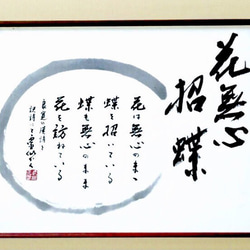 花無心
招蝶
花は無心のまま
蝶を招いている
蝶も無心のまま
花を訪ねている
良寛の漢詩を